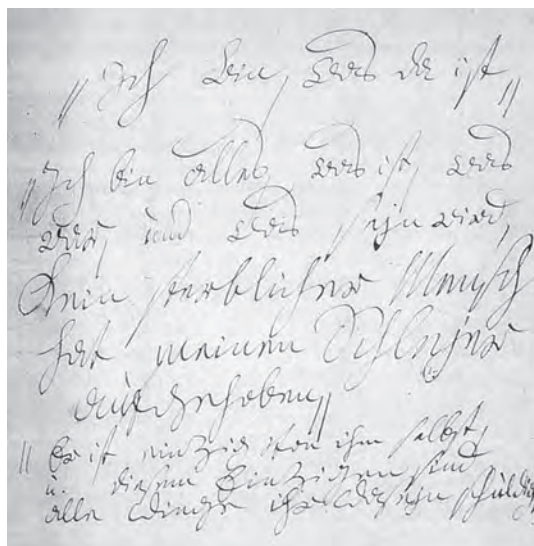 "Ich bin, was da ist"
"Ich bin alles, was ist, was
war, und was seyn wird,
Kein sterblicher Mensch
hat meinen Schleyer
aufgehoben"
"Er ist einzig von ihm selbst,
u. diesem Einzigen sind
alle Dinge ihr Daseyn schuldig